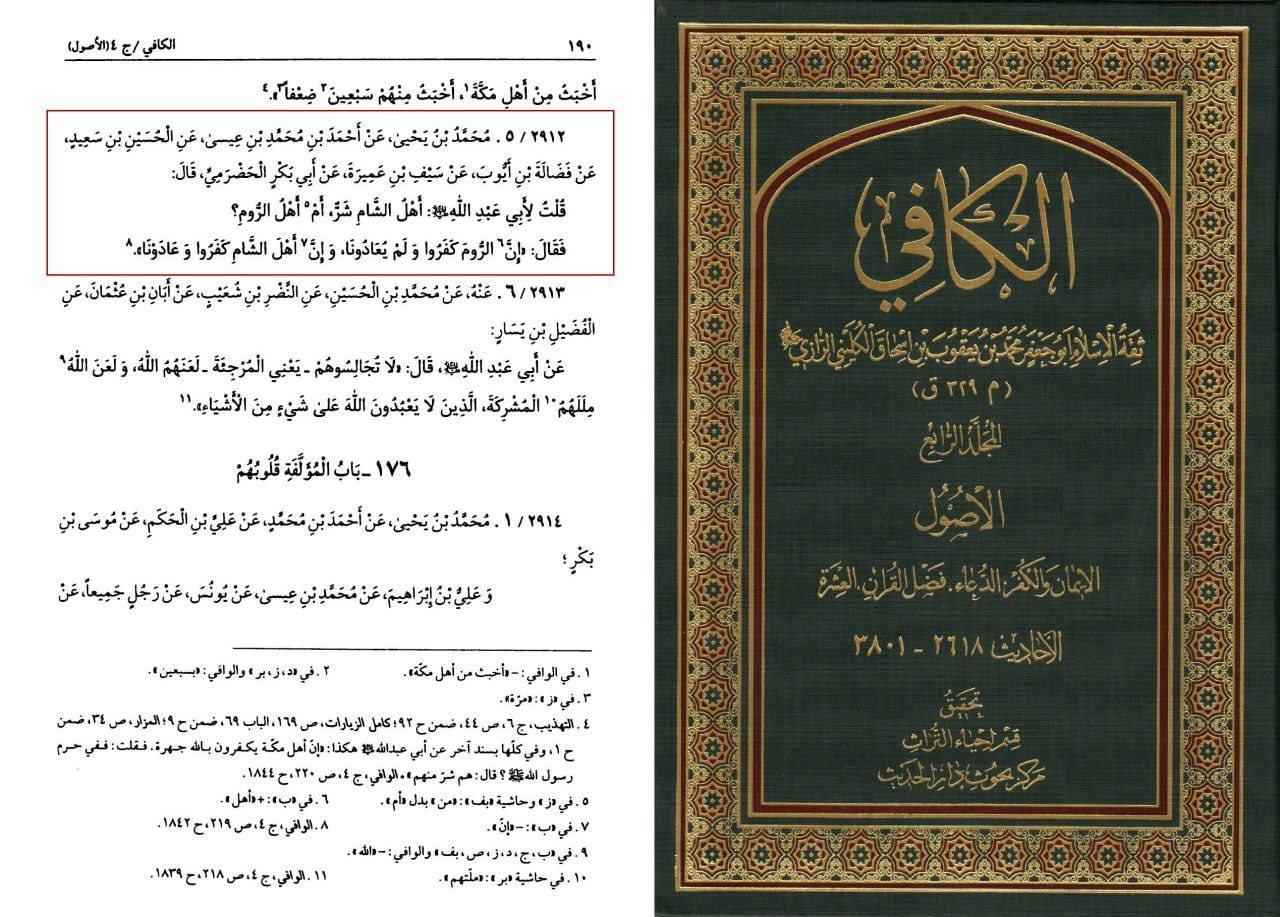 ١٩٠
الكافي /ج ٤ (الأصول)
أَخْبَثُ مِنْ أَهْلِ مَكَّةَ١، أَخْبَثُ مِنْهُمْ سَبْعِينَ٢ ضِعْفاً٣».٤
٢٩١٢ / ٥ . مُحَمَّدُ بْنُ يَحْيىٰ، عَنْ أَحْمَدَ بْنِ مُحَمَّدِ بْنِ عِيسىٰ، عَنِ الْحُسَيْنِ بْنِ سَعِيدٍ،
عَنْ فَضَالَةَ بْنِ أَيُّوبَ، عَنْ سَيْفِ بْنِ عَمِيرَةَ، عَنْ أَبِي بَكْرٍ الْحَضْرَمِيِّ، قَالَ:
قُلْتُ لِأَبِي عَبْدِ اللّٰهِ ﷺ: أَهْلُ الشَّامِ شَرٌّ، أَمْ٥ أَهْلُ الرُّومِ؟
فَقَالَ: «إِنَّ٦ الرُّومَ كَفَرُوا وَ لَمْ يُعَادُونَا، وَ إِنَّ٧ أَهْلَ الشَّامِ كَفَرُوا وَ عَادَوْنَا».٨
٢٩١٣ / ٦ . عَنْهُ، عَنْ مُحَمَّدِ بْنِ الْحُسَيْنِ، عَنِ النَّضْرِ بْنِ شُعَيْبٍ، عَنْ أَبَانِ بْنِ عُثْمَانَ، عَنِ
الْفُضَيْلِ بْنِ يَسَارٍ:
عَنْ أَبِي عَبْدِ اللّٰهِ ﷺ، قَالَ: «لَا تُجَالِسُوهُمْ ـ يَعْنِي الْمُرْجِئَةَ ـ لَعَنَهُمُ اللّٰهُ، وَ لَعَنَ اللّٰهُ٩
مِلَلَهُمُ١٠ الْمُشْرِكَةَ، الَّذِينَ لَا يَعْبُدُونَ اللّٰهَ عَلىٰ شَيْءٍ مِنَ الْأَشْيَاءِ».١١
١٧٦ ـ بَابُ الْمُؤَلَّفَةِ قُلُوبُهُمْ
٢٩١٤ / ١ . مُحَمَّدُ بْنُ يَحْيىٰ، عَنْ أَحْمَدَ بْنِ مُحَمَّدٍ، عَنْ عَلِيِّ بْنِ الْحَكَمِ، عَنْ مُوسَى بْنِ
بَكْرٍ ؛
وَ عَلِيُّ بْنُ إِبْرَاهِيمَ، عَنْ مُحَمَّدِ بْنِ عِيسىٰ، عَنْ يُونُسَ، عَنْ رَجُلٍ جَمِيعاً، عَنْ
١ . في الوافي: - «أخبث من أهل مكّة». ٢ . في «د، ز، بر» والوافي: «بسبعين».
٣ . في «ز»: «مرّة».
٤ . التهذيب، ج ٦، ص ٤٤، ضمن ح ٩٢؛ كامل الزيارات، ص ١٦٩، الباب ٦٩، ضمن ح ٩؛ المزار، ص ٣٤، ضمن
ح ١، وفي كلّها بسند آخر عن أبي عبدالله ﷺ هكذا: «إنّ أهل مكّة يكفرون بالله جهرة. فقلت: ففي حرم
رسول الله ﷺ؟ قال: هم شرّ منهم». الوافي، ج ٤، ص ٢٢٠، ح ١٨٤٤.
٥ . في «ز» وحاشية «بف»: «من» بدل «أم». ٦ . في «ب»: + «أهل».
٧ . في «ب»: - «إنّ». ٨ . الوافي، ج ٤، ص ٢١٩، ح ١٨٤٢.
٩ . في «ب، ج، د، ز، ص، بف» والوافي: - «الله».
١٠ . في حاشية «بر»: «ملّتهم». ١١ . الوافي، ج ٤، ص ٢١٨، ح ١٨٣٩.
الكافي
ثقة الإسلام أبو جعفر محمد بن يعقوب بن إسحاق الكليني الرازي
(م ٣٢٩ ق)
المجلد الرابع
الأصول
الإيمان والكفر، الدعاء، فضل القرآن، العشرة
الأحاديث ٢٦١٨ - ٣٨٠١
تحقيق
قسم إحياء التراث
مركز بحوث دار الحديث